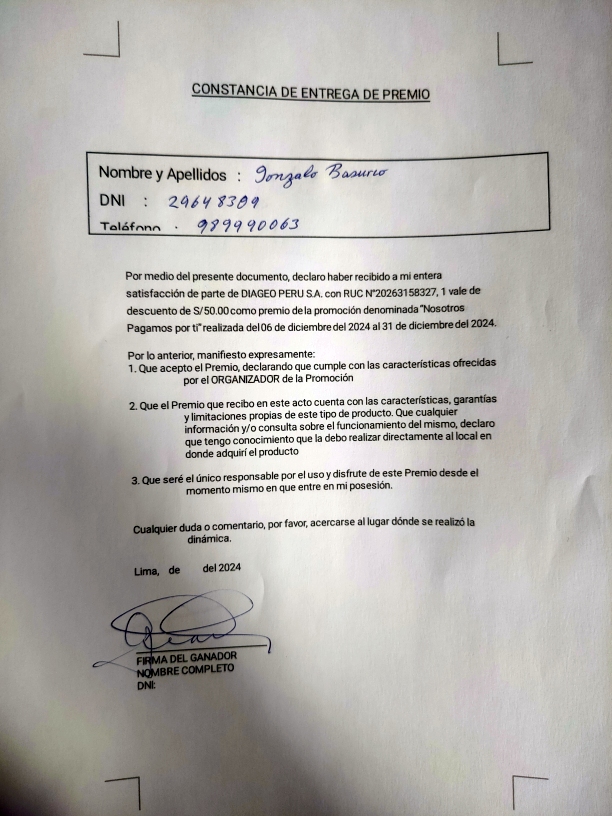 CONSTANCIA DE ENTREGA DE PREMIO
Nombre y Apellidos : Gonzalo Basurco
DNI : 29648309
Teléfono : 989990063
Por medio del presente documento, declaro haber recibido a mi entera
satisfacción de parte de DIAGEO PERU S.A. con RUC N°20263158327, 1 vale de
descuento de S/50.00 como premio de la promoción denominada "Nosotros
Pagamos por ti" realizada del 06 de diciembre del 2024 al 31 de diciembre del 2024.
Por lo anterior, manifiesto expresamente:
1. Que acepto el Premio, declarando que cumple con las características ofrecidas
por el ORGANIZADOR de la Promoción
2. Que el Premio que recibo en este acto cuenta con las características, garantías
y limitaciones propias de este tipo de producto. Que cualquier
información y/o consulta sobre el funcionamiento del mismo, declaro
que tengo conocimiento que la debo realizar directamente al local en
donde adquirí el producto
3. Que seré el único responsable por el uso y disfrute de este Premio desde el
momento mismo en que entre en mi posesión.
Cualquier duda o comentario, por favor, acercarse al lugar dónde se realizó la
dinámica.
Lima, de del 2024
FIRMA DEL GANADOR
NOMBRE COMPLETO
DNI: